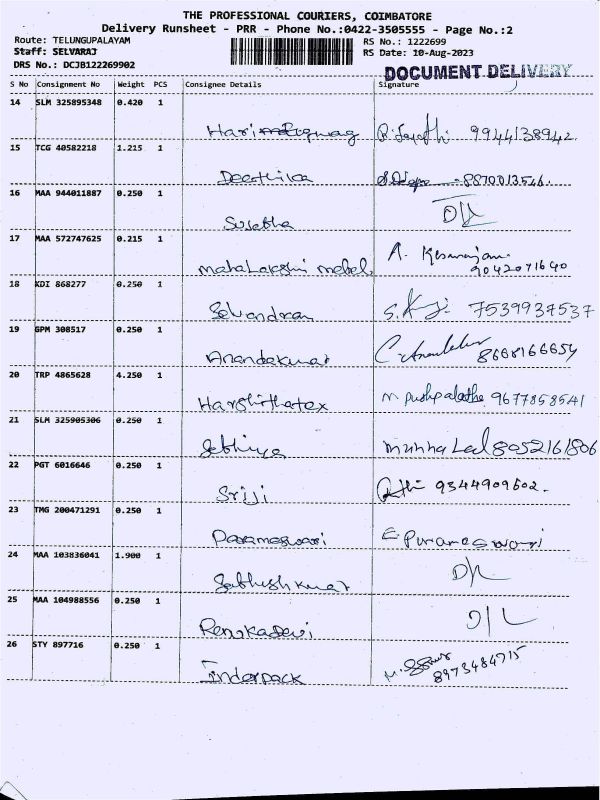 THE PROFESSIONAL COURIERS, COIMBATORE
Delivery Runsheet - PRR - Phone No.:0422-3505555 - Page No.:2
Route: TELUNGUPALAYAM RS No.: 1222699
Staff: SELVARAJ RS Date: 10-Aug-2023
DRS No.: DCJB122269902 DOCUMENT DELIVERY
S No Consignment No Weight PCS Consignee Details Signature
14 SLM 325895348 0.420 1
9944138942
15 TCG 40582218 1.215 1
Deerthika 8870013546
16 MAA 944011887 0.250 1
Sujatha D/L
17 MAA 572747625 0.215 1
mahalakshmi mebel A. Kesavarajan
9042071640
18 KDI 868277 0.250 1
Selvandran 7539937537
19 GPM 308517 0.250 1
Anandakumar 8668166654
20 TRP 4865628 4.250 1
Harshithatex m pushpalatha 9677858541
21 SLM 325905306 0.250 1
munna Lal 8052161806
22 PGT 6016646 0.250 1
Sriji 9344909602.
23 TMG 200471291 0.250 1
Parameswari E Puraneswari
24 MAA 103836041 1.900 1
Sathishkumar D/L
25 MAA 104988556 0.250 1
Renukadevi D/L
26 STY 897716 0.250 1
Inderpack 8973484715